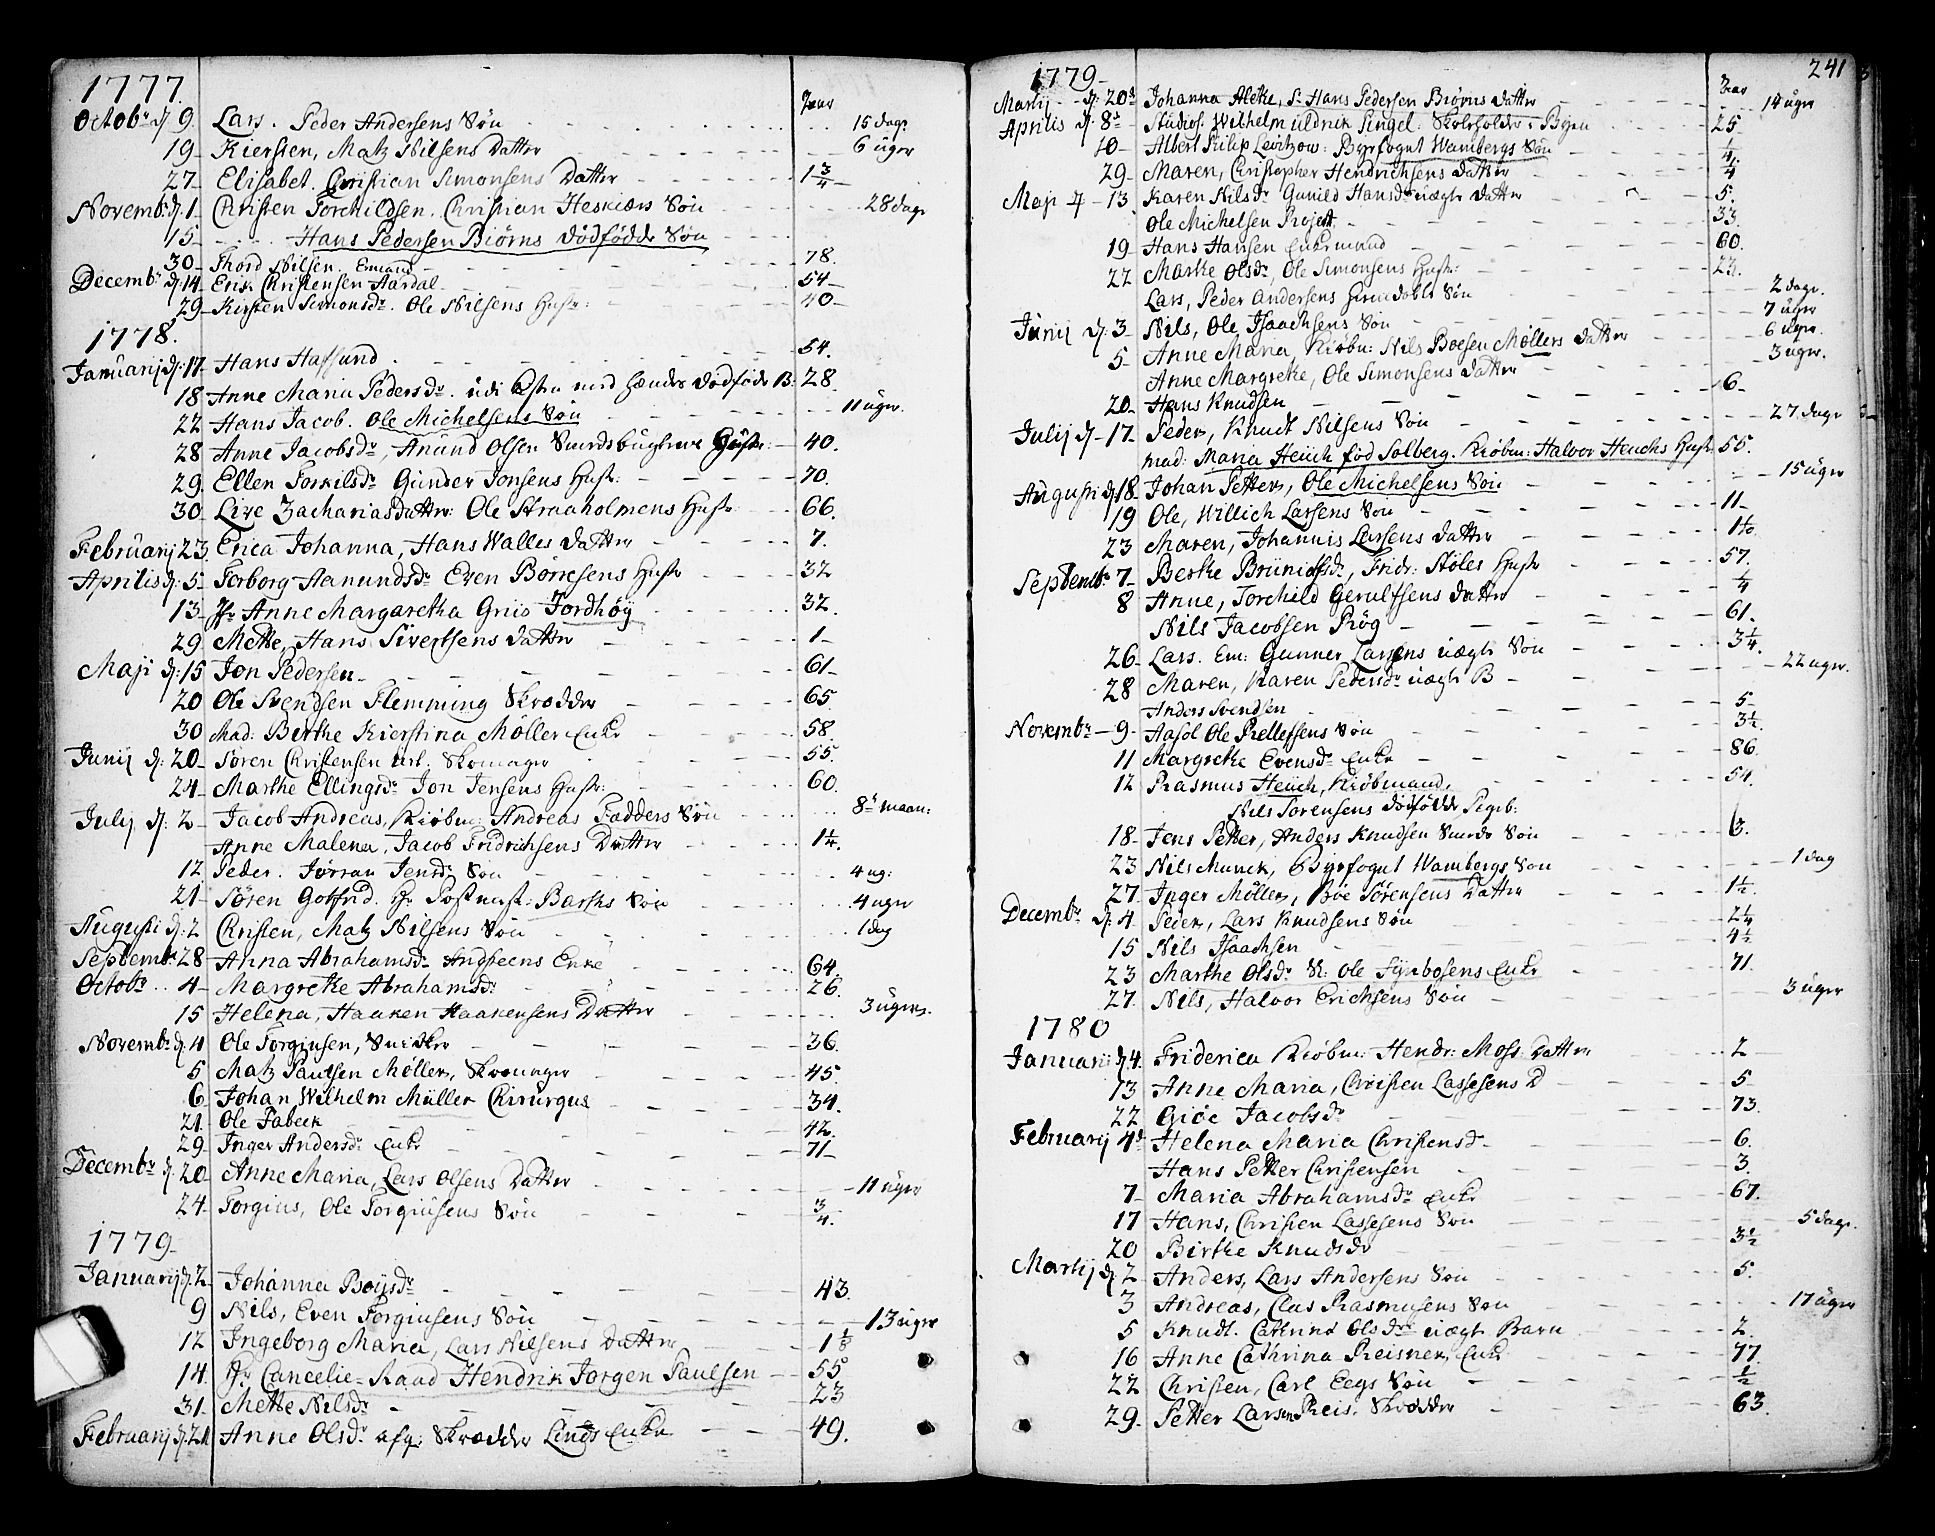 1777.
Aar
Octobr. d. 9. Lars. Peder Andersens Søn 15 dage
19- Kiersten, Matz Nilsens Datter 6 uger
27- Elisabet. Christian Simonsens Datter 1 3/4
Novemb: d. 1- Christen Torchildsen. Christian Heskiærs Søn 28 dage
15- Hans Pedersen Biörns dödfödde Søn
30- Thord Nilsen. Enmand 78.
Decembr d. 14- Erik Christensen Aardal 54-
29- Kirsten Simonsdr. Ole Nilsens Hustr: 40-
1778.
Januarij d: 17- Hans Hafsund 54.
18 Anne Maria Pedersdr. med hændes dödföde B: 28
22 Hans Jacob. Ole Michelsens Søn 11 uger.
28 Anne Jacobsdr, Anund Olsen Hustr: 40.
29. Ellen Torkilsdr Gunder Jonsens Hustr: 70.
30- Live Zachariasdatter: Ole Straaholmens Hustr 66.
Februarij 23. Erica Johanna, Hans Walles datter 7.
Aprilis d: 5- Torborg Aanundsdr Even Börresens Hustr 32
13- Jfr Anne Margaretha Griis Tordhöy 32.
29. Mette, Hans Sivertsens datter 1-
Maji d: 15 Jon Pedersen 61-
20 Ole Svendsen Flemming Skrædder 65
30 Mad: Birthe Kierstina Möller Enke 58.
Junij d: 20- Sören Christensen Skomager 55.
24- Marthe Ellingsdr Jon Jensens Hustr: 60.
Julij d: 2- Jacob Andreas, Kiöbm: Andreas Fadders Søn 8 maan:
Anne Malena, Jacob Fridrichsens Datter 1 1/4.
12 Peder. Jörran Jensdr Søn 4 ug:
21- Sören Gotfrid. Hr Postmest: Barths Søn 4 uger
Augusti d: 2 Christen, Matz Nilsens Søn 1 dag
Septembr 28 Anna Abrahamsdr Andreens Enke 64.
Octobr. 4- Margrethe Abrahamsdr 26.
15 Helena, Haaken Haakensens Datter 3 uger.
Novembr d. 4 Ole Torginsen, Snedker 36.
5 Matz Paulsen Möller, Skomager 45.
6. Johan Wilhelm Müller Chirurgus 34.
21. Ole Fabeck 42.
29- Inger Andersdr Enke 71-
Decembr d. 20- Anne Maria, Lars Olsens Datter 11 uger
24. Torgius, Ole Torgiusens Søn 3/4.
1779-
Januarij d. 2- Johanna Boysdr 43.
9 Nils, Even Torgiusens Søn 13 uger
12 Ingeborg Maria, Lars Nilsens Datter 1 1/8
14. Hr Cancelie-Raad Hendrik Jørgen Paulsen 55
31. Mette Nilsdr 23
Februarij d. 21 Anne Olsdr afg: Skrædder Linds Enke 49.
1779-
241
Aar
Martij d: 20d Johanna Aleke, Sr Hans Pedersen Biörns datter 14 uger
Aprilis d: 8d Studios. Wilhelm Uldrik Pingel: Skoleholder i Byen 25-
10- Albert Philip Levetzow: Byefogut Wambergs Søn 1/4.
29- Maren, Christopher Hendrichsens datter 1/4
Maji d- 13 Karen Nilsdr Gunild Hansdr uægte datter 5.
Ole Michelsen Projekt 33.
19 Hans Hansen Enkemand 60.
22 Marthe Olsdr, Ole Simonsens Hustr: 23.
Lars, Peder Andersens Søn 2 dage.
Junij d: 3- Nils, Ole Isaachsens Søn 7 uger
5- Anne Maria, Kiöbm: Nils Boesen Möllers datter 6 uger.
Anne Margrethe, Ole Simonsens datter 3 uger.
20- Hans Knudsen 6-
Julij d- 17- Peder, Knudt Nilsens Søn 27 dage
Mad: Maria Heuch föd Solberg. Kiöbm: Halvor Heuchs Hustr 55.
Augusti d. 18- Johan Petter, Ole Michelsens Søn 15 uger
19 Ole, Willich Larsens Søn 11-
23 Maren, Johannis Larsens datter 1 1/2
Septembr 7- Berthe Brünichsdr, Fridr: Stöles Hustr 57.
8 Anne, Torchild Gerulfsens datter 1/4
Nils Jacobsen Rög 61.
26- Lars. Em: Gunner Larsens uægte Søn 3 1/4.
28 Maren, Karen Pedersdr uægte B 22 uger.
Anders Svendsen 5-
Novembr- 9- Aasol Ole Rellefsens Søn 3 1/2.
11 Margrethe Evensdr Enke 86.
12 Rasmus Heuch, Kiöbmand. 54.
Nils Sörensens dödfödde Pigeb:
18- Jens Petter, Anders Knudsen Søn 6.
23 Nils Munck, Byefogut Wambergs Søn 1 dag
27. Inger Möller, Boe Sörensens Datter 1 1/2.
Decembr d. 4 Peder, Lars Knudsens Søn 2 1/4
15 Nils Isaachsen 4 1/2
23 Marthe Olsdr S: Ole Fyrbosens Enke 71.
27. Nils, Halvor Erichsens Søn 3 uger
1780
Januarii d. 4. Friderica Kiöbm: Hendr: Moss Datter 2
13 Anne Maria, Christen Lassesens D 5
22 Giöe Jacobsdr 73.
Februarij 4d Helena Maria Christensd 6.
Hans Petter Christensen 3.
7- Maria Abrahamsdr Enke 67.
17 Hans, Christen Lassesens Søn 5 dage.
20 Birthe Knudsdr 3 1/2
Martij d. 2- Anders, Lars Andersens Søn 5.
3 Andreas, Clas Rasmusens Søn 17 uger
5 Knudt. Cathrine Olsdr uægte Barn 2.
16 Anne Cathrina Reisner, Enke 77.
22 Christen, Carl Eegs Søn 1/2
29. Petter Larsen Reis. Skrædder 63.